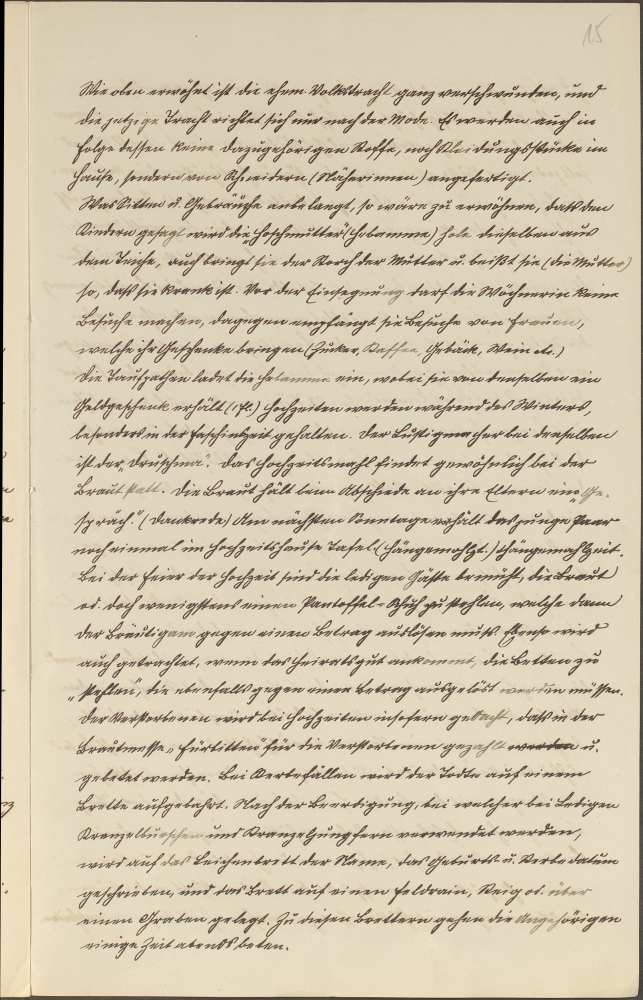 15
Wie oben erwähnt ist die ehem. Volkstracht ganz verschwunden, und
die jetzige Tracht richtet sich nur nach der Mode. Es werden auch in
Folge dessen keine dazugehörigen Stoffe, noch Kleidungsstücke im
Hause, sondern von Schneidern (Näherinnen) angefertigt.
Was Sitten u. Gebräuche anbelangt, so wäre zu erwähnen, daß den
Kindern gesagt wird die „Hoschmutter" (Hebamme) hole dieselben aus
dem Teiche, auch bringt sie der Storch der Mutter u. beißt sie (die Mutter)
so, daß sie krank ist. Vor der Einsegnung darf die Wöchnerin keine
Besuche machen, dagegen empfängt sie Besuche von Frauen,
welche ihr Geschenke bringen (Zucker, Kaffee, Gebäck, Wein etc.)
Die Taufpathen ladet die Hebamme ein, wobei sie von denselben ein
Geldgeschenk erhält (1 fl.) Hochzeiten werden während des Winters,
besonders in der Faschingszeit gehalten. Der Lustigmacher bei denselben
ist der „Druschma". Das Hochzeitsmahl findet gewöhnlich bei der
Braut statt. Die Braut hält beim Abschiede an ihre Eltern ein „Ge-
spräch." (Dankrede) Am nächsten Sonntage erhält das junge Paar
noch einmal im Hochzeitshause Tafel. (Hängemahlzt.) Hängemahlzeit.
Bei der Feier der Hochzeit sind die ledigen Gäste bemüht, die Braut
od. doch wenigstens einen Pantoffel-Schuh zu stehlen, welche dann
der Bräutigam gegen einen Betrag auslösen muß. Ebenso wird
auch getrachtet, wenn das Heiratsgut ankommt, die Betten zu
„stehlen", die ebenfalls gegen einen Betrag ausgelöst werden müssen.
Der Verstorbenen wird bei Hochzeiten insofern gedacht, daß in der
Brautmesse „Fürbitten" für die Verstorbenen gezahlt werden u.
gebetet werden. Bei Sterbefällen wird der Todte auf einem
Brette aufgebahrt. Nach der Beerdigung, bei welcher bei Ledigen
Kranzelburschen und Kranzeljungfern verwendet werden,
wird auf das Leichenbrett der Name, das Geburts u. Sterbedatum
geschrieben, und das Brett auf einen Feldrain, Steig od. über
einen Graben gelegt. Zu diesen Brettern gehen die Angehörigen
einige Zeit abends beten.